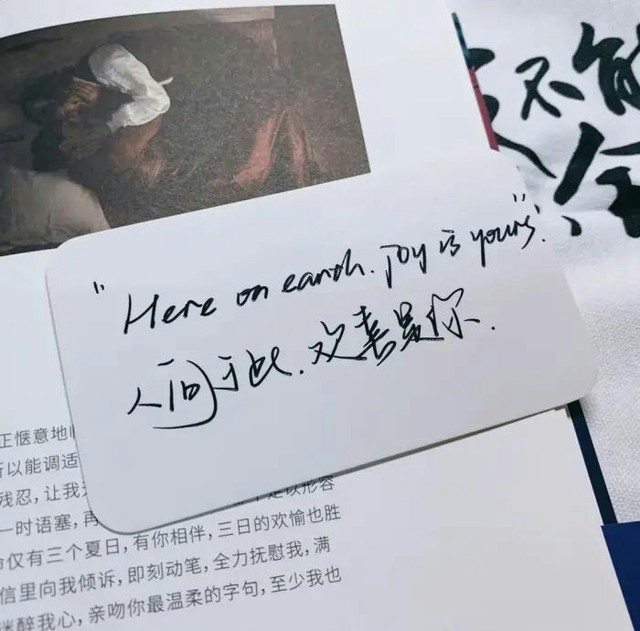 不能
"Here on earth. joy is yours".
人间于此. 欢喜是你.
正惬意地
所以能调适
残忍,让我
足以形容
一时语塞,再
仅有三个夏日,有你相伴,三日的欢愉也胜
信里向我倾诉,即刻动笔,全力抚慰我,满
迷醉我心,亲吻你最温柔的字句,至少我也